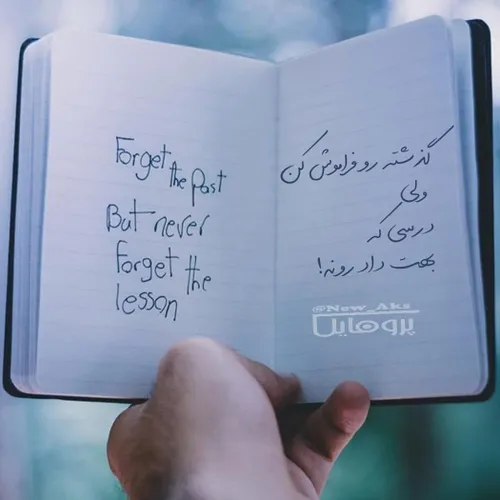 Forget
the past
But never
forget the
lesson
گذشته رو فراموش کن
ولی
درسی که
بهت داد رو نه!
@New_Aks
پروفایل